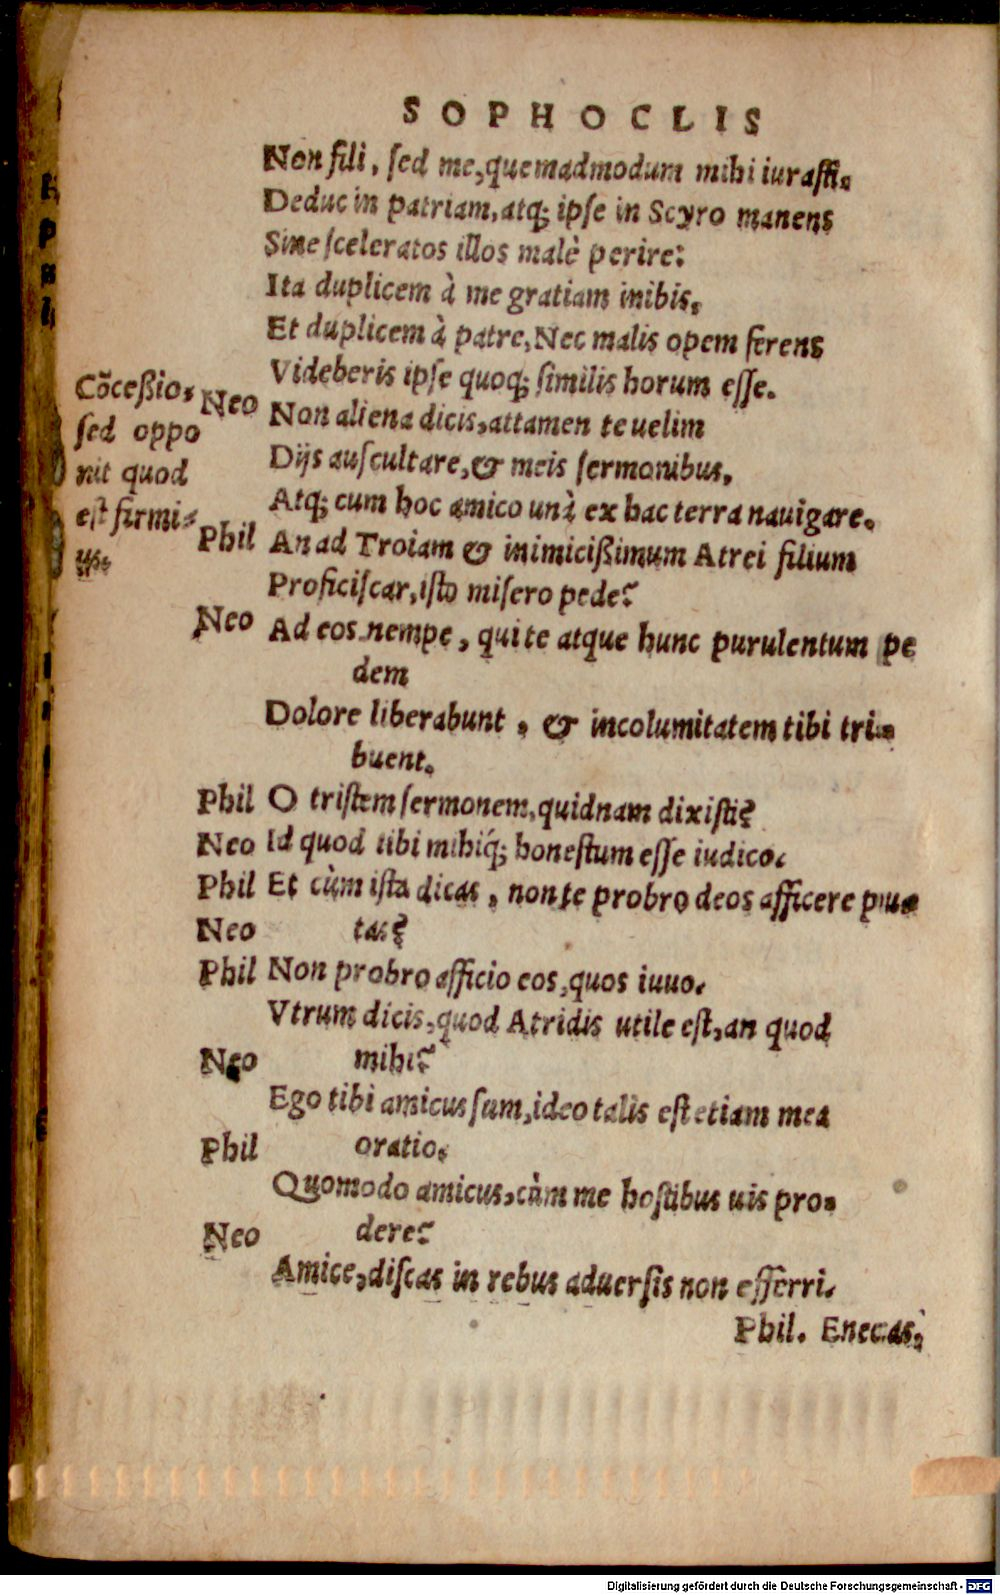 SOPHOCLIS
Non fili, sed me, quemadmodum mihi iurasti.
Deduc in patriam, atq; ipse in Scyro manens
Sine sceleratos illos malè perire:
Ita duplicem à me gratiam inibis,
Et duplicem à patre, Nec malis opem ferens
Videberis ipse quoq; similis horum esse.
Cōceßio,
sed oppo
nit quod
est firmi-
us.
Neo Non aliena dicis, attamen te uelim
Dijs auscultare, & meis sermonibus,
Atq; cum hoc amico unà ex hac terra nauigare.
Phil An ad Troiam & inimicißimum Atrei filium
Proficiscar, isto misero pede?
Neo Ad eos nempe, qui te atque hunc purulentum pe
dem
Dolore liberabunt, & incolumitatem tibi tri-
buent.
Phil O tristem sermonem, quidnam dixisti?
Neo Id quod tibi mihiq́; honestum esse iudico.
Phil Et cùm ista dicas, non te probro deos afficere pu-
Neo tas?
Phil Non probro afficio eos, quos iuuo.
Vtrum dicis, quod Atridis utile est, an quod
Neo mihi?
Ego tibi amicus sum, ideo talis est etiam mea
Phil oratio.
Quomodo amicus, cùm me hostibus uis pro-
Neo dere?
Amice, discas in rebus aduersis non efferri.
Phil. Enecas,
Digitalisierung gefördert durch die Deutsche Forschungsgemeinschaft - DFG